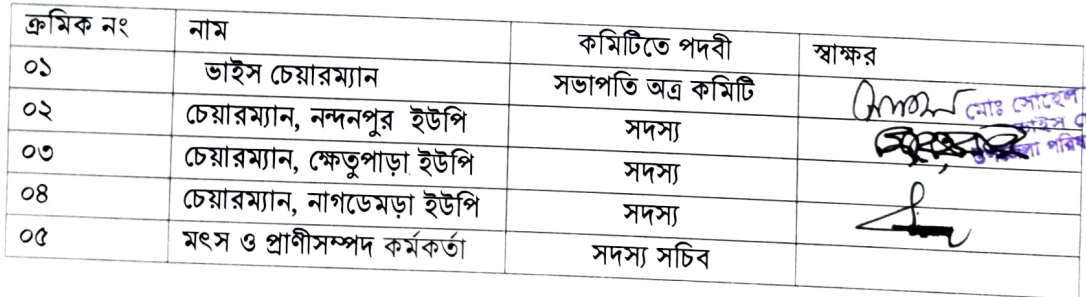 ক্রমিক নং নাম কমিটিতে পদবী স্বাক্ষর
০১ ভাইস চেয়ারম্যান সভাপতি অত্র কমিটি
০২ চেয়ারম্যান, নন্দনপুর ইউপি সদস্য
০৩ চেয়ারম্যান, ক্ষেতুপাড়া ইউপি সদস্য
০৪ চেয়ারম্যান, নাগডেমড়া ইউপি সদস্য
০৫ মৎস ও প্রাণীসম্পদ কর্মকর্তা সদস্য সচিব
মোঃ সোহেল
ভাইস